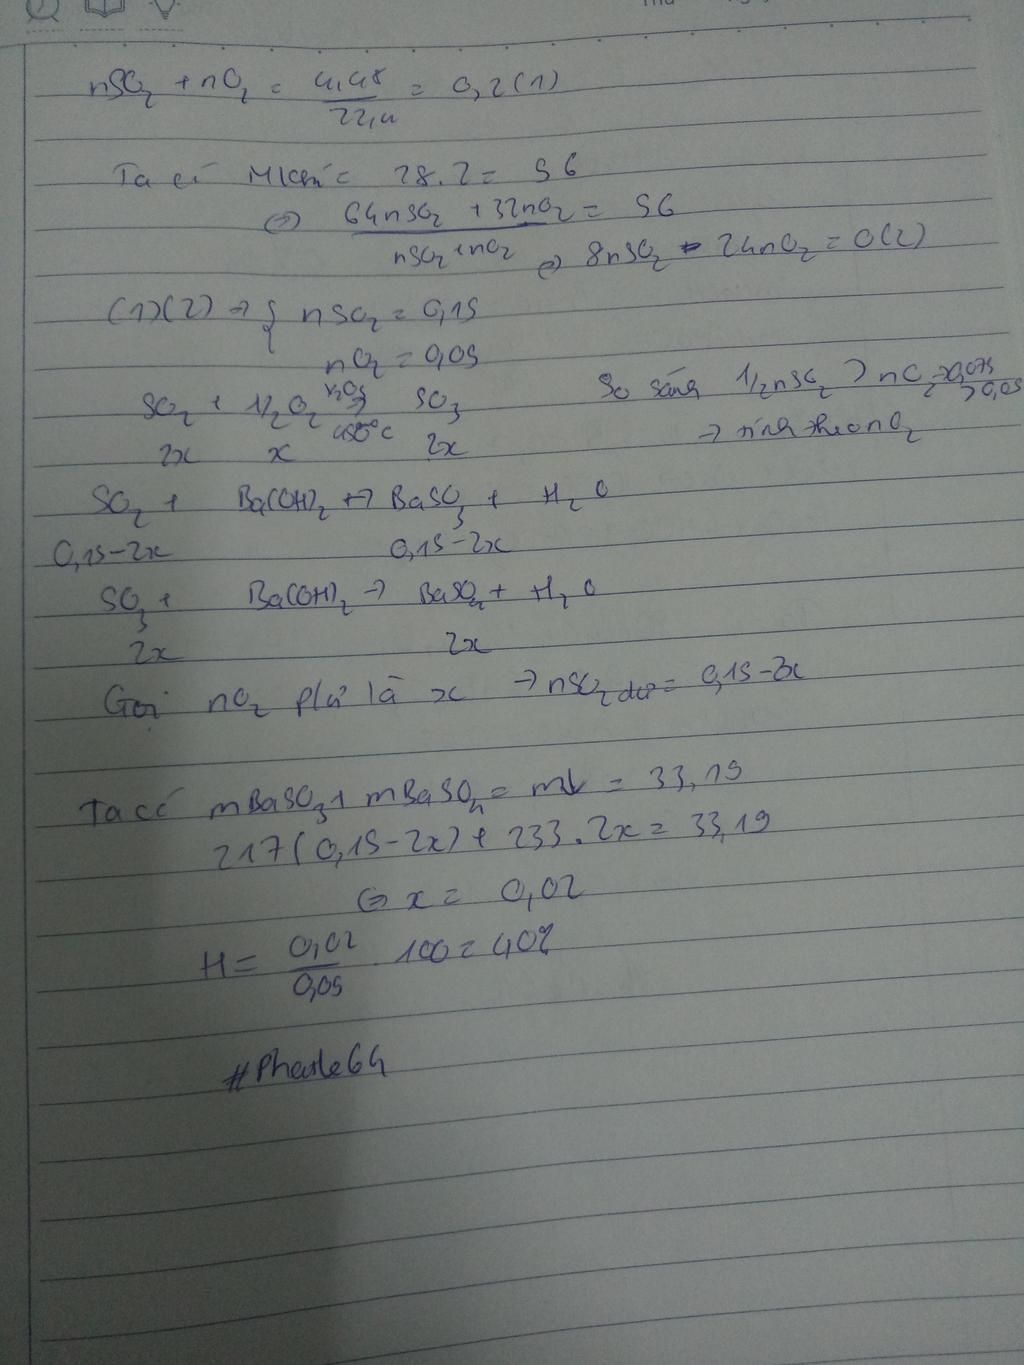 nSO2 + nO2 = 4,48/22,4 = 0,2 (1)
Ta có Mkhí = 28.2 = 56
⇔ (64nSO2 + 32nO2)/(nSO2 + nO2) = 56
⇔ 8nSO2 - 24nO2 = 0 (2)
(1)(2) → { nSO2 = 0,15
nO2 = 0,05
SO2 + 1/2O2 ⇌ SO3 V2O5 450°C
So sánh 1/2nSO2 > nO2 → 0,075 > 0,05
2x x 2x
→ tính theo nO2
SO2 + Ba(OH)2 → BaSO3 + H2O
0,15-2x 0,15-2x
SO3 + Ba(OH)2 → BaSO4 + H2O
2x 2x
Gọi nO2 p/ứ là x → nSO2 dư = 0,15-2x
Ta có mBaSO3 + mBaSO4 = m↓ = 33,19
217(0,15-2x) + 233.2x = 33,19
⇔ x = 0,02
H = 0,02/0,05 . 100 = 40%